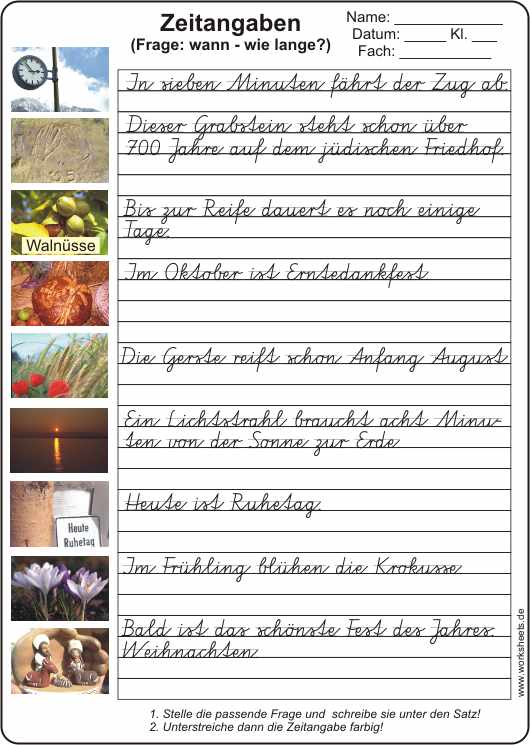 Zeitangaben
(Frage: wann - wie lange?)
Name: _____________
Datum: _____ Kl. ___
Fach: ___________
In sieben Minuten fährt der Zug ab.
Dieser Grabstein steht schon über
700 Jahre auf dem jüdischen Friedhof.
Bis zur Reife dauert es noch einige
Tage.
Walnüsse
Im Oktober ist Erntedankfest
Die Gerste reift schon Anfang August
Ein Lichtstrahl braucht acht Minu-
ten von der Sonne zur Erde
Heute ist Ruhetag.
Heute
Ruhetag
Im Frühling blühen die Krokusse
Bald ist das schönste Fest des Jahres:
Weihnachten
www.worksheets.de
1. Stelle die passende Frage und schreibe sie unter den Satz!
2. Unterstreiche dann die Zeitangabe farbig!